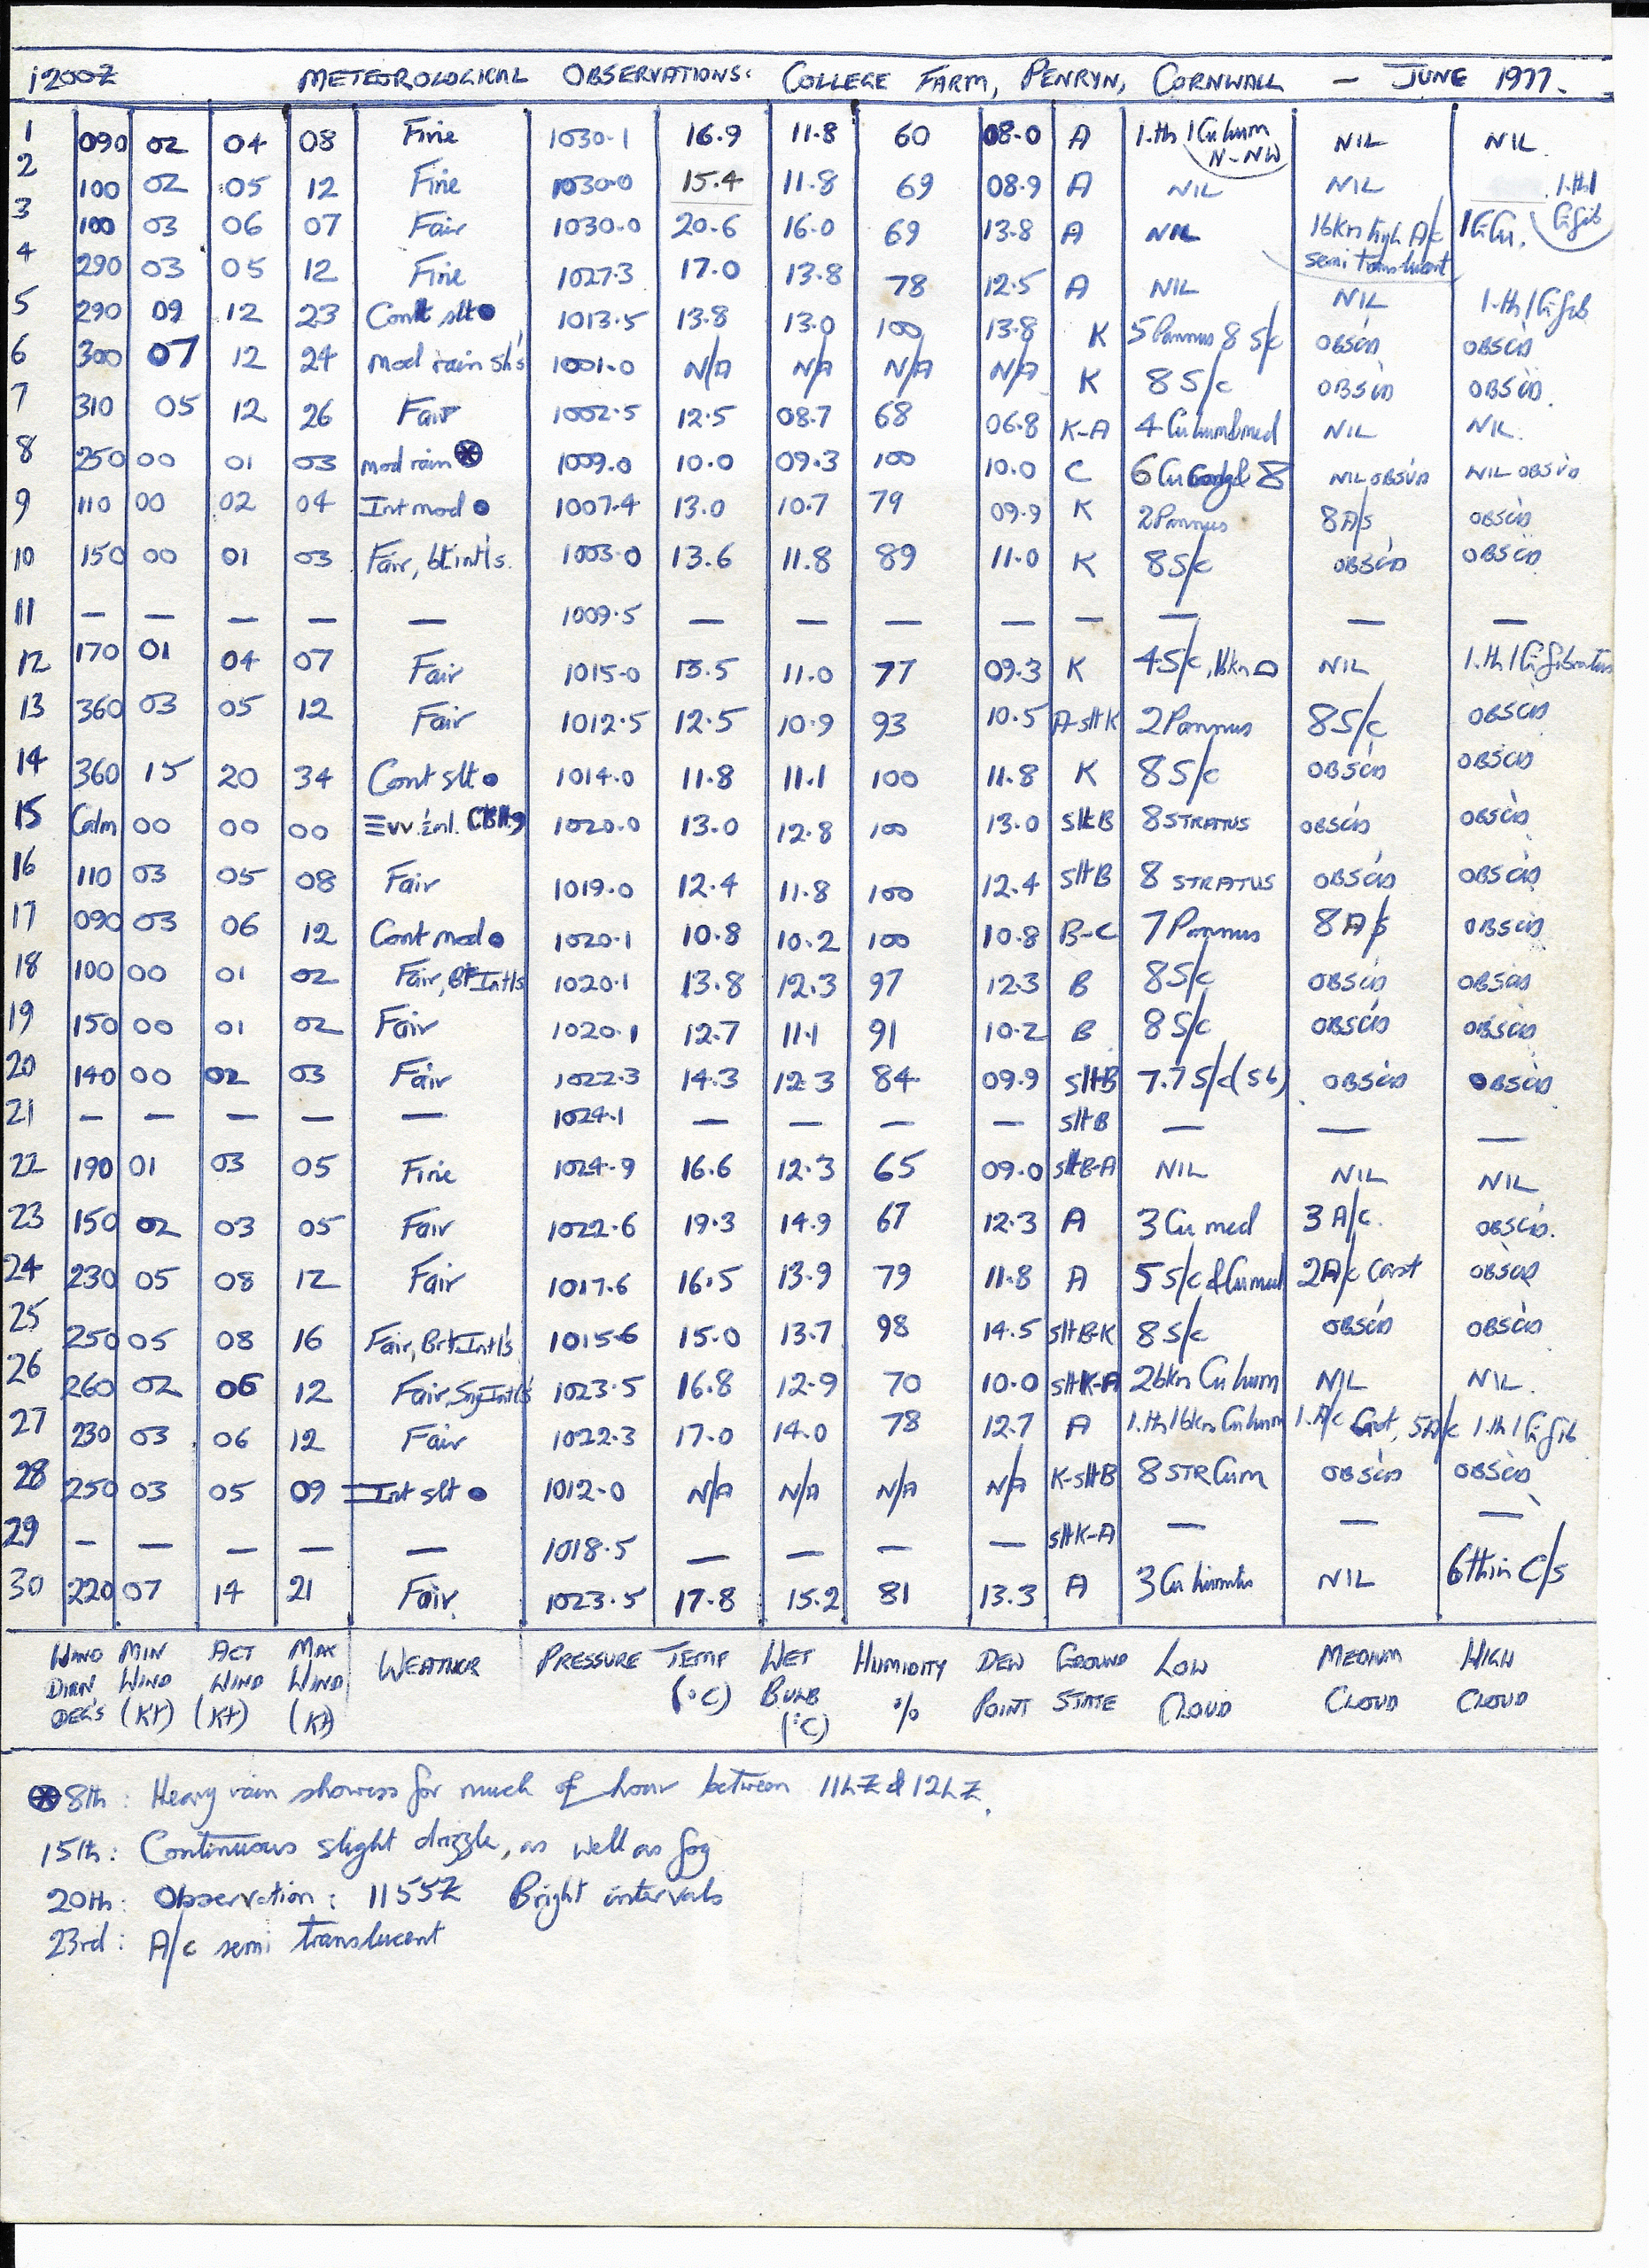 1200Z METEOROLOGICAL OBSERVATIONS: COLLEGE FARM, PENRYN, CORNWALL – JUNE 1977.
1 090 02 04 08 Fine 1030.1 16.9 11.8 60 08.0 A 1.th 1 Cu hum N-NW NIL NIL
2 100 02 05 12 Fine 1030.0 15.4 11.8 69 08.9 A NIL NIL 1.th 1 Ci fib
3 100 03 06 07 Fair 1030.0 20.6 16.0 69 13.8 A NIL 1 bkn high A/c semi translucent
4 290 03 05 12 Fine 1027.3 17.0 13.8 78 12.5 A NIL NIL 1.th 1 Ci fib
5 290 09 12 23 Cont slt ● 1013.5 13.8 13.0 100 13.8 K 5 Pannus 8 S/c OBSC'D OBSC'D
6 300 07 12 24 Mod rain sh's 1001.0 N/A N/A N/A N/A K 8 S/c OBSC'D OBSC'D
7 310 05 12 26 Fair 1002.5 12.5 08.7 68 06.8 K-A 4 Cu hum & med NIL NIL.
8 250 00 01 03 Mod rain ⊛ 1009.0 10.0 09.3 100 10.0 C 6 Cu 8 NIL OBSVD NIL OBSVD
9 110 00 02 04 Int mod ● 1007.4 13.0 10.7 79 09.9 K 2 Pannus 8 A/s OBSC'D
10 150 00 01 03 Fair, bt int'ls. 1003.0 13.6 11.8 89 11.0 K 8 S/c OBSC'D OBSC'D
11 — — — — — 1009.5 — — — — — — — —
12 170 01 04 07 Fair 1015.0 13.5 11.0 77 09.3 K 4 S/c, 1 bkn NIL 1.th 1 Ci fibratus
13 360 03 05 12 Fair 1012.5 12.5 10.9 93 10.5 A-slt K 2 Pannus 8 S/c OBSC'D
14 360 15 20 34 Cont slt ● 1014.0 11.8 11.1 100 11.8 K 8 S/c OBSC'D OBSC'D
15 Calm 00 00 00 ≡ 1020.0 13.0 12.8 100 13.0 slt B 8 STRATUS OBSC'D OBSC'D
16 110 03 05 08 Fair 1019.0 12.4 11.8 100 12.4 slt B 8 STRATUS OBSC'D OBSC'D
17 090 03 06 12 Cont mod ● 1020.1 10.8 10.2 100 10.8 B-C 7 Pannus 8 A/s OBSC'D
18 100 00 01 02 Fair, Bt Intls 1020.1 13.8 12.3 97 12.3 B 8 S/c OBSC'D OBSC'D
19 150 00 01 02 Fair 1020.1 12.7 11.1 91 10.2 B 8 S/c OBSC'D OBSC'D
20 140 00 02 03 Fair 1022.3 14.3 12.3 84 09.9 slt B 7.7 S/c (Sb) OBSC'D OBSC'D
21 — — — — — 1024.1 — — — — slt B — — —
22 190 01 03 05 Fine 1024.9 16.6 12.3 65 09.0 slt B-A NIL NIL NIL
23 150 02 03 05 Fair 1022.6 19.3 14.9 67 12.3 A 3 Cu med 3 A/c. OBSC'D.
24 230 05 08 12 Fair 1017.6 16.5 13.9 79 11.8 A 5 S/c & Cu med 2 A/c Cast OBSC'D
25 250 05 08 16 Fair, Brt Intl's 1015.6 15.0 13.7 98 14.5 slt B-K 8 S/c OBSC'D OBSC'D
26 260 02 06 12 Fair, Sny Intl's 1023.5 16.8 12.9 70 10.0 slt K-A 2 bkn Cu hum NIL NIL.
27 230 03 06 12 Fair 1022.3 17.0 14.0 78 12.7 A 1.th 1 bkn Cu hum 1. A/c Cast, 5 A/c 1.th 1 Ci fib
28 250 03 05 09 Int slt ● 1012.0 N/A N/A N/A N/A K-slt B 8 STR Cum OBSC'D OBSC'D
29 — — — — — 1018.5 — — — — slt K-A — — —
30 220 07 14 21 Fair. 1023.5 17.8 15.2 81 13.3 A 3 Cu humilis NIL 6 thin C/s
WIND MIN ACT MAX WEATHER PRESSURE TEMP WET HUMIDITY DEW GROUND LOW MEDIUM HIGH
DIRN WIND WIND WIND (°C) BULB % POINT STATE CLOUD CLOUD CLOUD
DEG'S (Kt) (Kt) (Kt) (°C)
⊛ 8th: Heavy rain showers for much of hour between 11hZ & 12hZ.
15th: Continuous slight drizzle, as well as fog
20th: Observation: 1155Z Bright intervals
23rd: A/c semi translucent